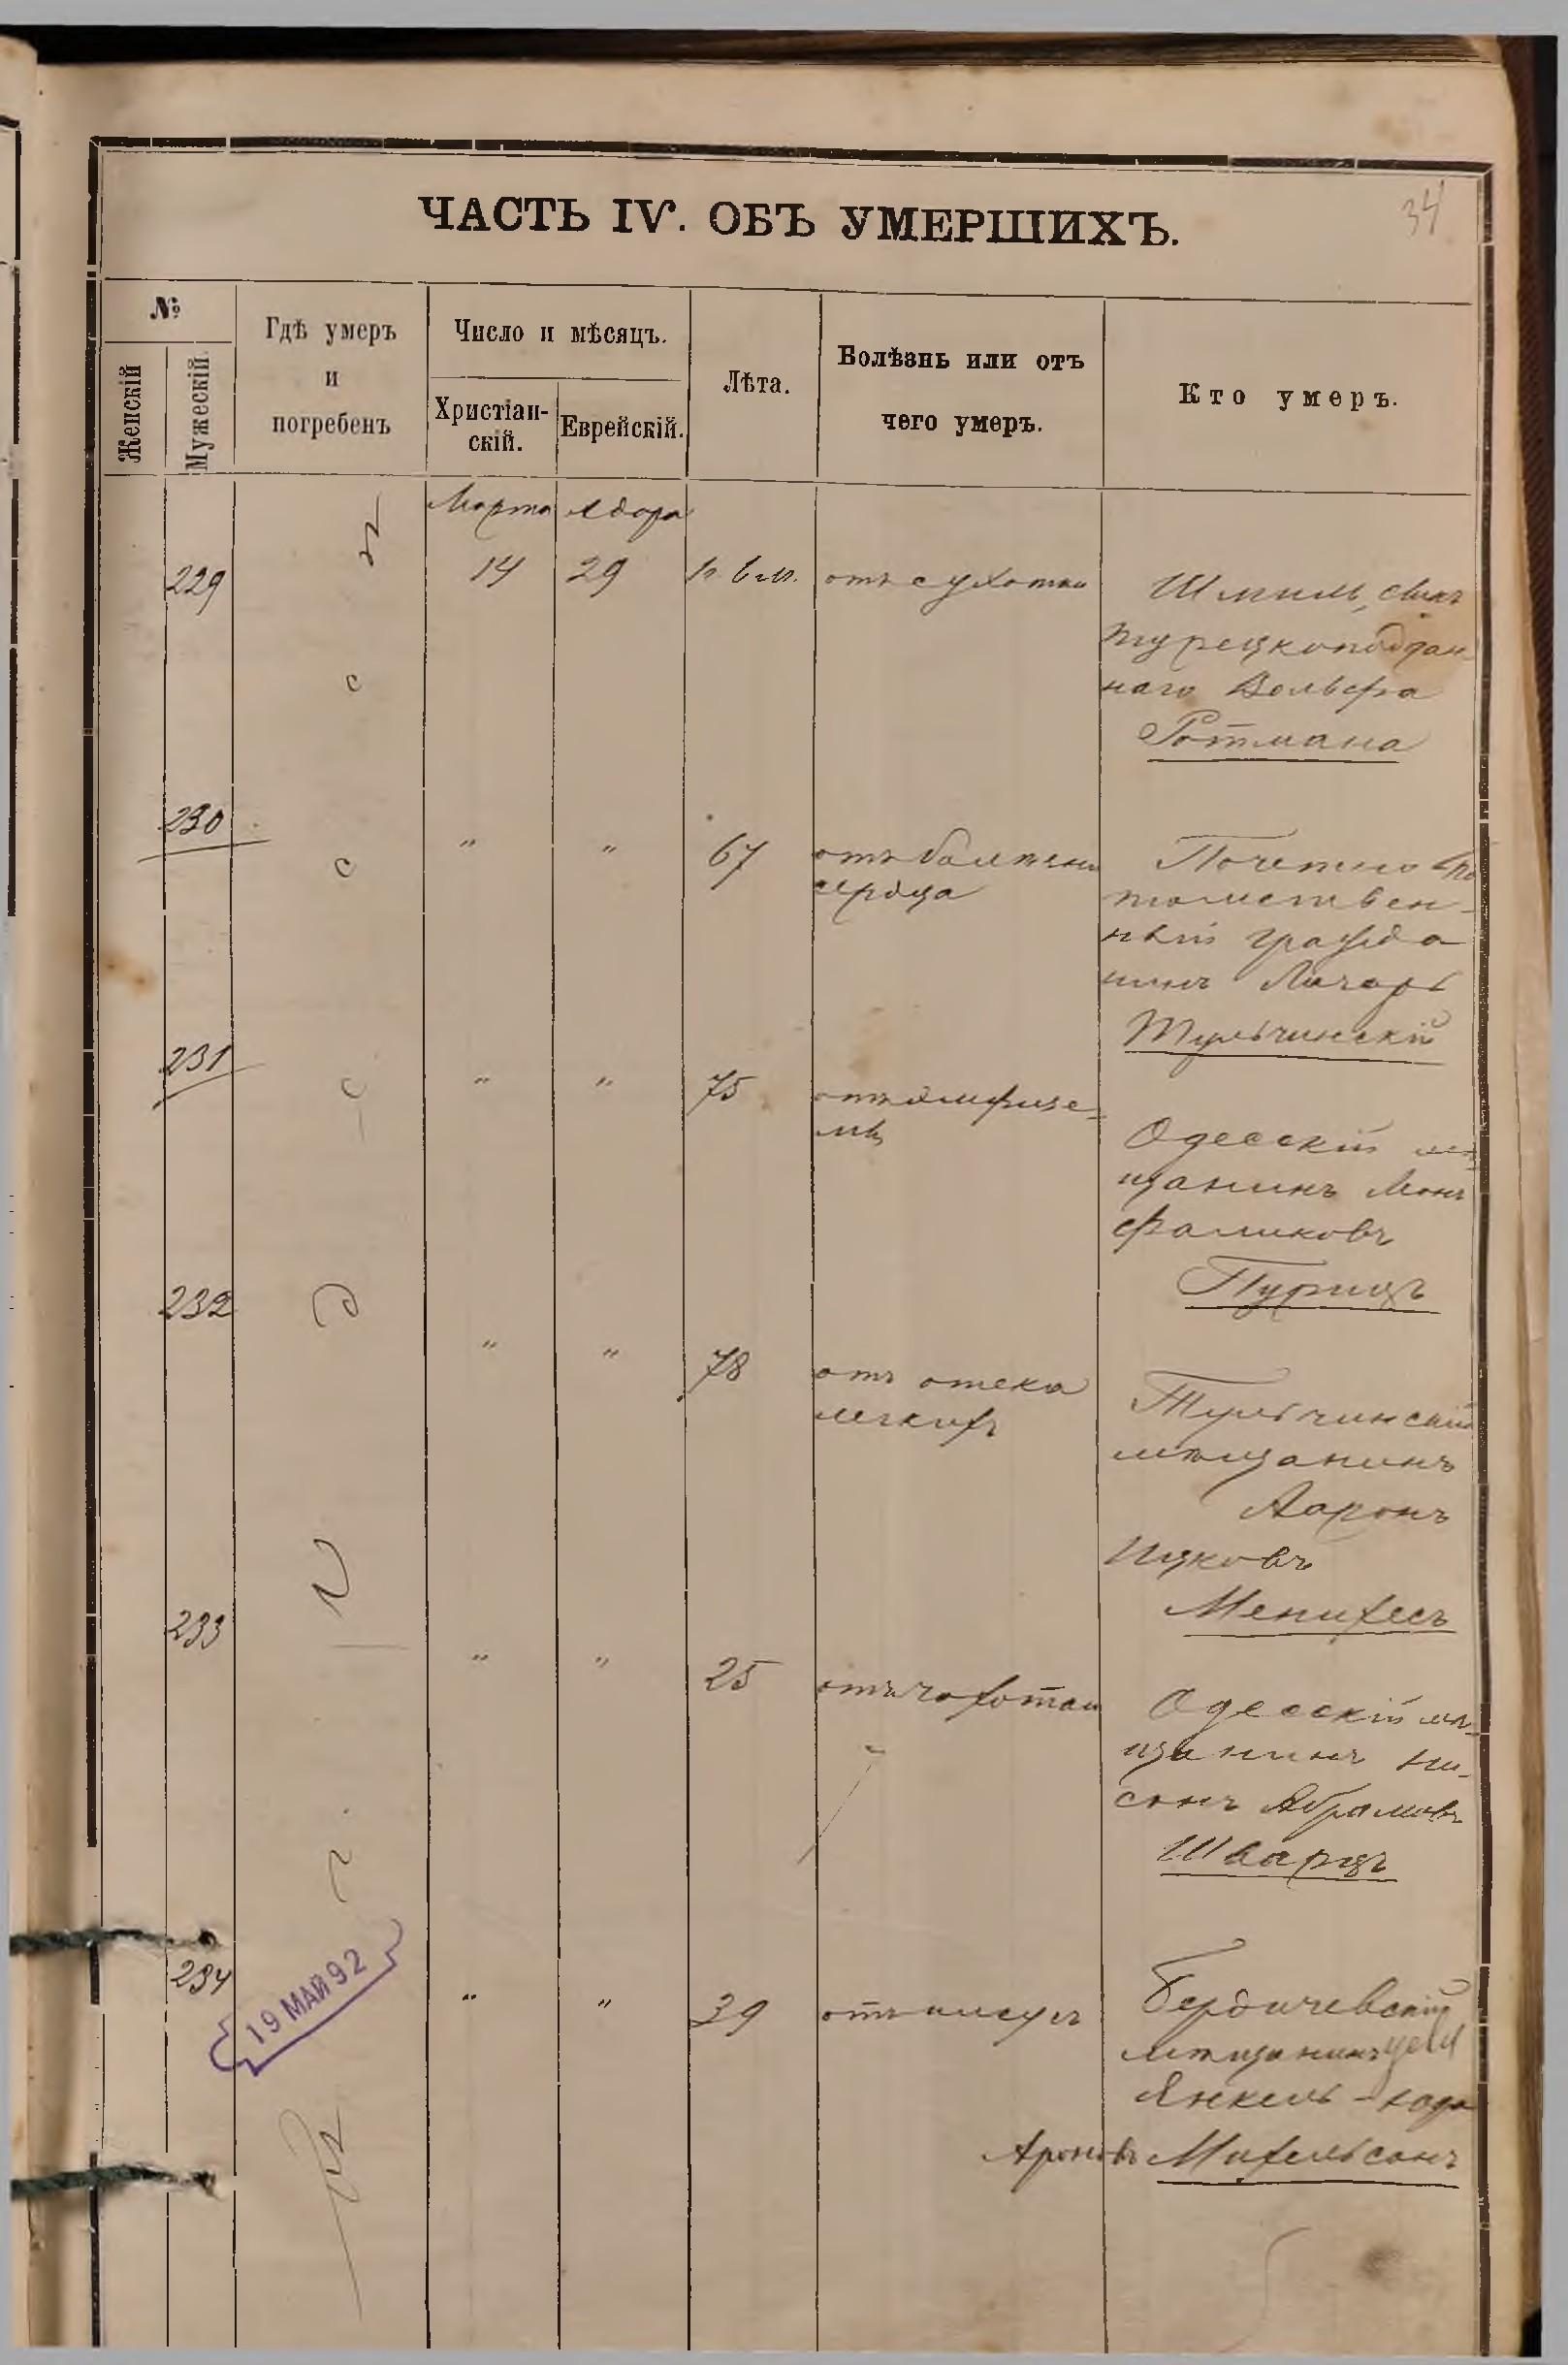 34
ЧАСТЬ IV. ОБЪ УМЕРШИХЪ.
№
Женскій
Мужескій
Гдѣ умеръ
и
погребенъ
Число и мѣсяцъ.
Христіан-
скій.
Еврейскій.
Лѣта.
Болѣзнь или отъ
чего умеръ.
Кто умеръ.
Марта Адара
229 14 29 отъ сухотки
Шмиль, сынъ
турецкоподдан
наго Вольфа
Ротмана
230 " " 67 отъ болѣзни
сердца
Почетно По
томствен-
ный гражда
нинъ Лазарь
Тульчинскій
231 " " 75 отъ эмфизе-
мы
Одесскій мѣ
щанинъ
Фаликовъ
Пурицъ
232 " " 78 отъ отека
легкихъ
Тульчинскій
мѣщанинъ
Ааронъ
Ицковъ
Менихесъ
233 " " 25 отъ чахотки
Одесскій мѣ-
щанинъ Ни-
сонъ Абрамовъ
Шварцъ
19 МАЙ 92
234 " " 39 отъ
Бердичевскій
мѣщанинъ
Янкель -
Ароновъ Михельсонъ
Одесса